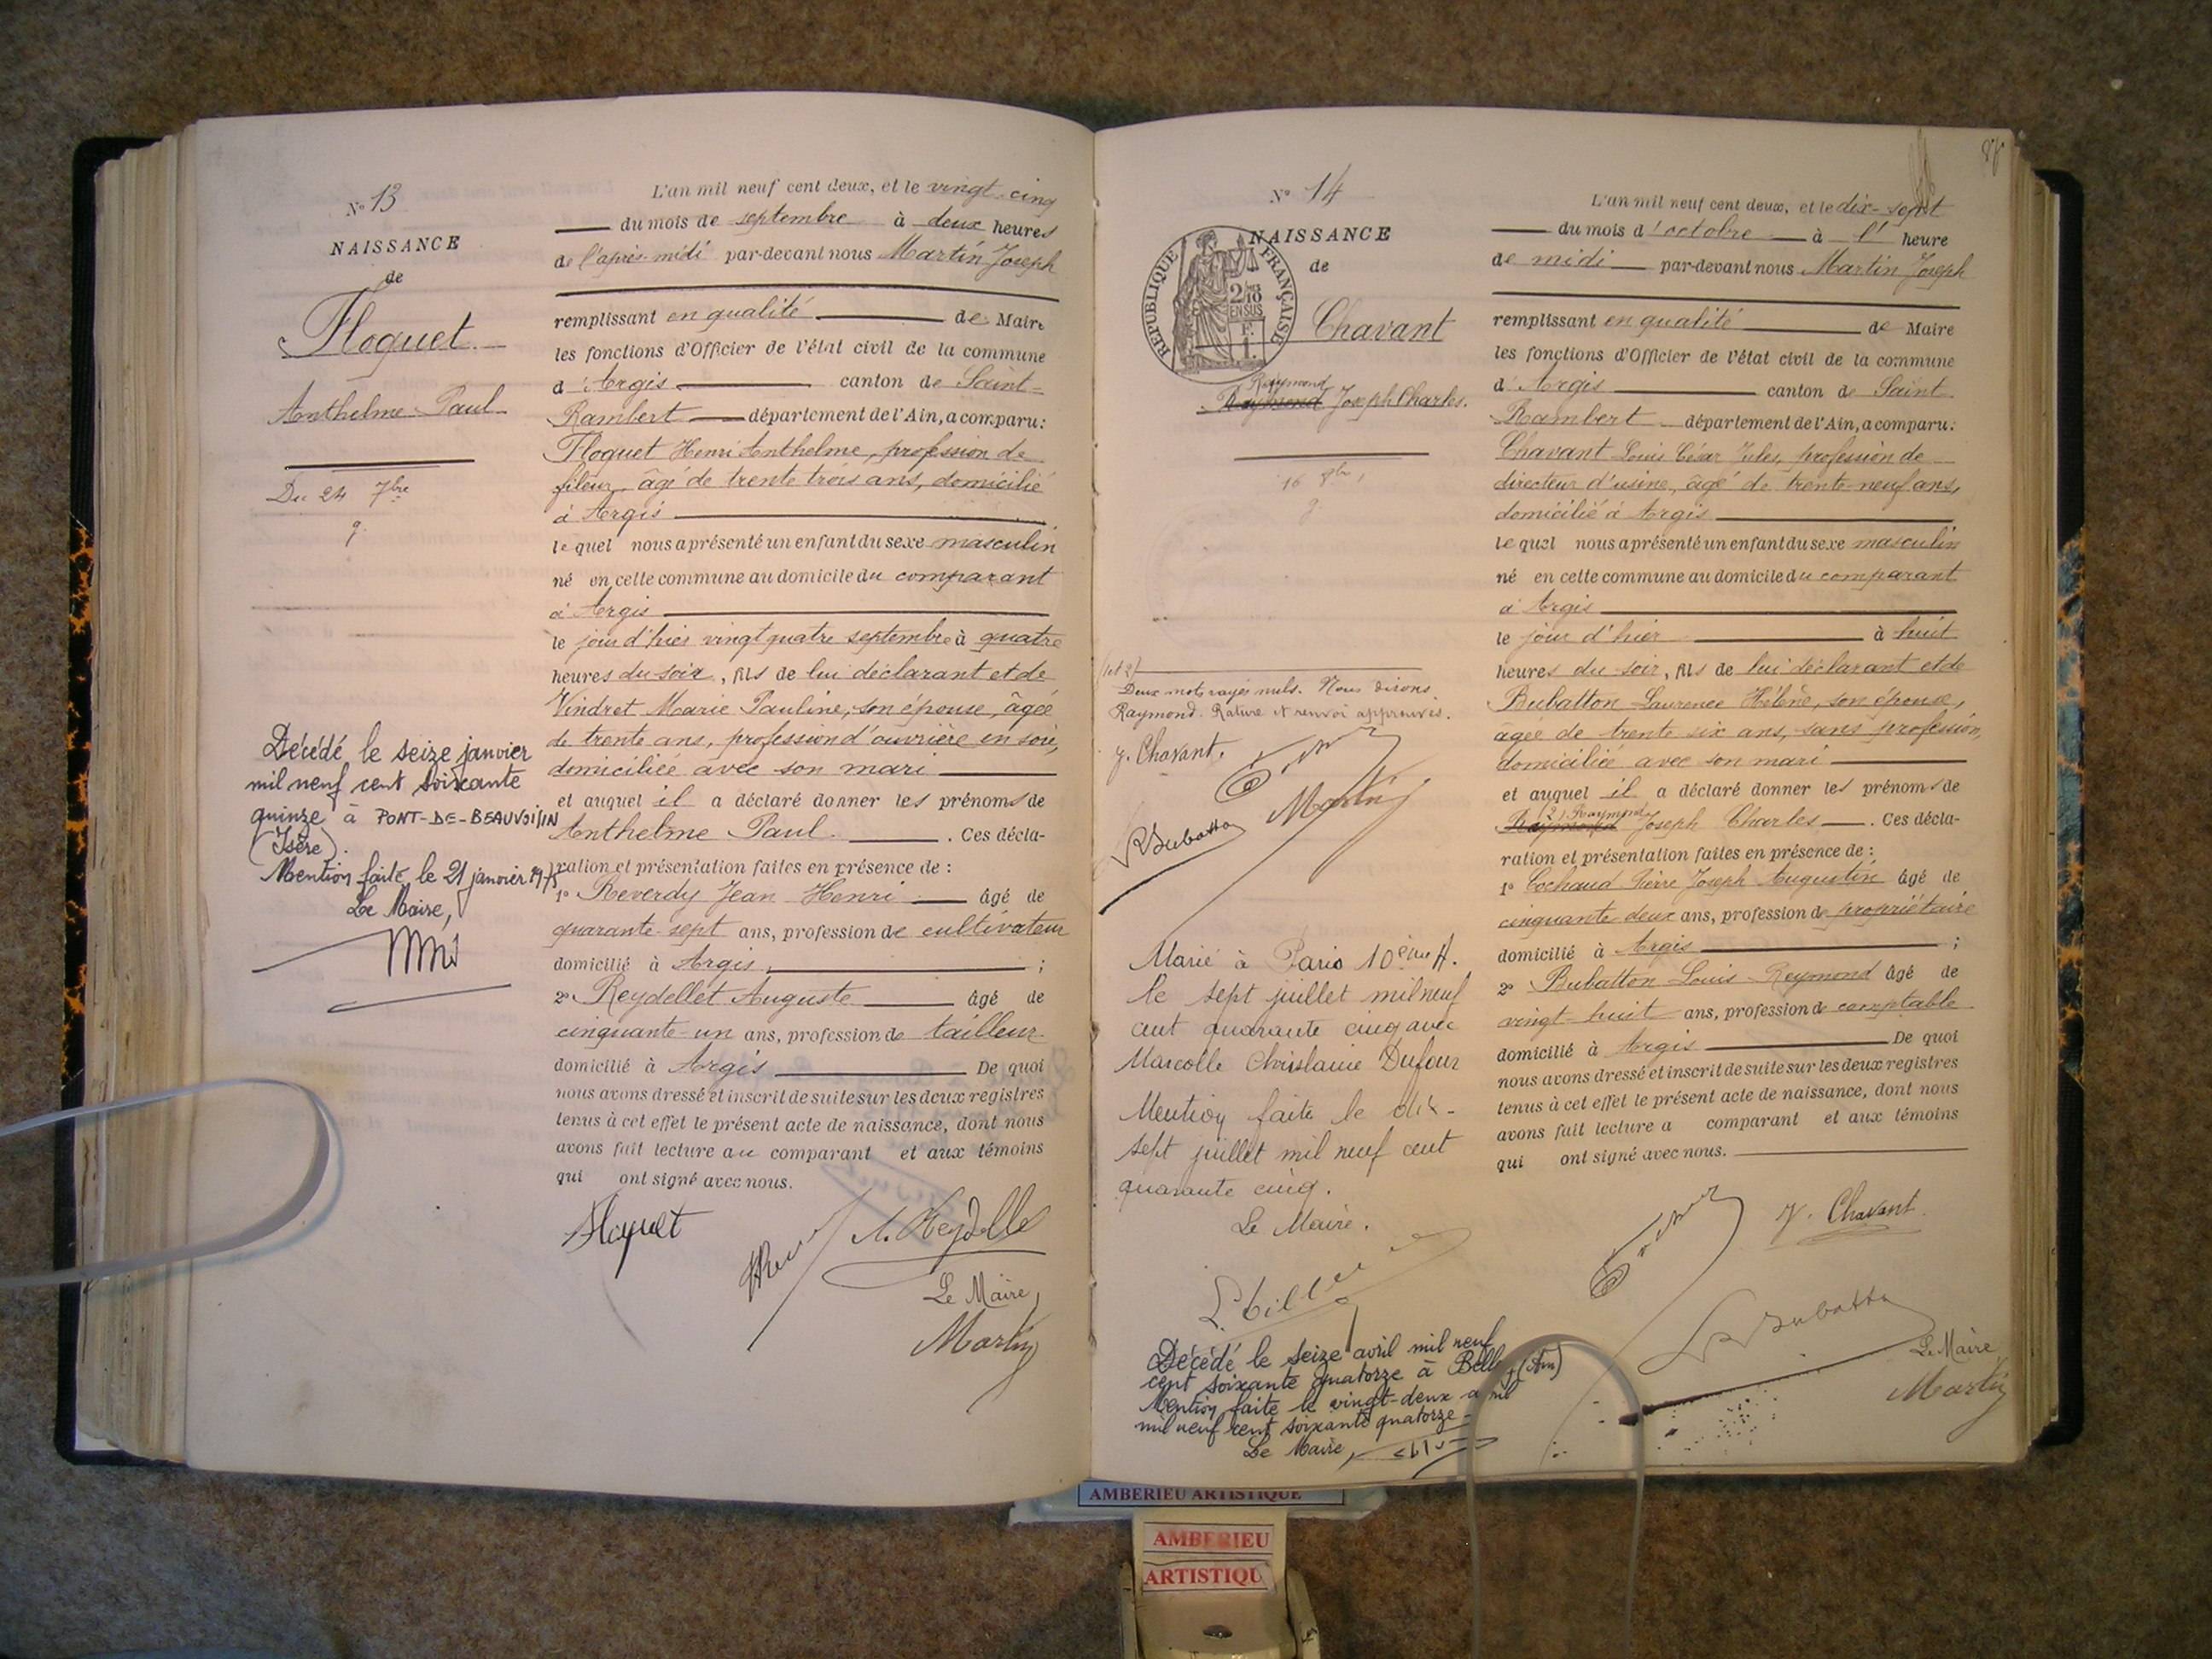 N° 13
NAISSANCE
de
Floquet
Anthelme Paul
Du 24 7bre
9.
Décédé le seize janvier
mil neuf cent soixante
quinze à PONT-DE-BEAUVOISIN
(Isère).
Mention faite le 21 janvier 1975
Le Maire,
L'an mil neuf cent deux, et le vingt-cinq
du mois de septembre à deux heures
de l'après-midi par-devant nous Martin Joseph
remplissant en qualité de Maire
les fonctions d'Officier de l'état civil de la commune
d'Argis canton de Saint-
Rambert département de l'Ain, a comparu:
Floquet Henri Anthelme, profession de
fileur, âgé de trente trois ans, domicilié
à Argis
lequel nous a présenté un enfant du sexe masculin
né en cette commune au domicile du comparant
à Argis
le jour d'hier vingt quatre septembre à quatre
heures du soir, fils de lui déclarant et de
Vindret Marie Pauline, son épouse, âgée
de trente ans, profession d'ouvrière en soie,
domiciliée avec son mari
et auquel il a déclaré donner les prénoms de
Anthelme Paul. Ces décla-
ration et présentation faites en présence de :
1° Reverdy Jean Henri âgé de
quarante-sept ans, profession de cultivateur
domicilié à Argis, ;
2° Reydellet Auguste âgé de
cinquante-un ans, profession de tailleur
domicilié à Argis De quoi
nous avons dressé et inscrit de suite sur les deux registres
tenus à cet effet le présent acte de naissance, dont nous
avons fait lecture au comparant et aux témoins
qui ont signé avec nous.
Floquet
A. Reydelle
Le Maire,
Martin
87
N° 14
NAISSANCE
de
RÉPUBLIQUE FRANÇAISE
2/10
EN SUS
F.
1.
Chavant
Raymond
Raymond Joseph Charles.
16 8bre
9
(1 et 2)
Deux mots rayés nuls. Nous disons
Raymond. Rature et renvoi approuvés.
J. Chavant.
Martin
Bubatton
Marié à Paris 10ème A.
le sept juillet mil neuf
cent quarante cinq avec
Marcelle Christaine Dufour
Mention faite le dix-
sept juillet mil neuf cent
quarante cinq.
Le Maire.
Décédé le seize avril mil neuf
cent soixante quatorze à Belley (Ain)
Mention faite le vingt-deux avril
mil neuf cent soixante quatorze-
Le Maire,
L'an mil neuf cent deux, et le dix-sept
du mois d'octobre à l' heure
de midi par-devant nous Martin Joseph
remplissant en qualité de Maire
les fonctions d'Officier de l'état civil de la commune
d'Argis canton de Saint
Rambert département de l'Ain, a comparu:
Chavant Louis César Jules, profession de
directeur d'usine, âgé de trente-neuf ans,
domicilié à Argis
lequel nous a présenté un enfant du sexe masculin
né en cette commune au domicile du comparant
à Argis
le jour d'hier à huit
heures du soir, fils de lui déclarant et de
Bubatton Laurence Hélène, son épouse,
âgée de trente six ans, sans profession,
domiciliée avec son mari
et auquel il a déclaré donner les prénoms de
(2) Raymond
Raymond Joseph Charles. Ces décla-
ration et présentation faites en présence de :
1° Cochaud Pierre Joseph Augustin âgé de
cinquante deux ans, profession de propriétaire
domicilié à Argis ;
2° Bubatton Louis Reymond âgé de
vingt-huit ans, profession de comptable
domicilié à Argis De quoi
nous avons dressé et inscrit de suite sur les deux registres
tenus à cet effet le présent acte de naissance, dont nous
avons fait lecture a comparant et aux témoins
qui ont signé avec nous.
J. Chavant
Bubatton
Le Maire
Martin
AMBERIEU ARTISTIQUE
AMBERIEU
ARTISTIQU